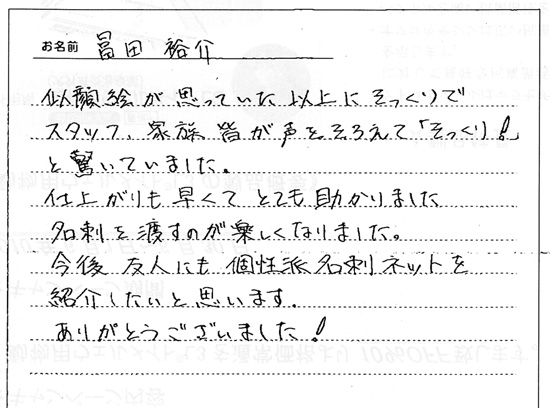 お名前 冨田 裕介
似顔絵が思っていた以上にそっくりで
スタッフ、家族、皆が声をそろえて「そっくり!」
と驚いていました。
仕上がりも早くてとても助かりました
名刺を渡すのが楽しくなりました。
今後 友人にも 個性派名刺ネットを
紹介したいと思います。
ありがとうございました!